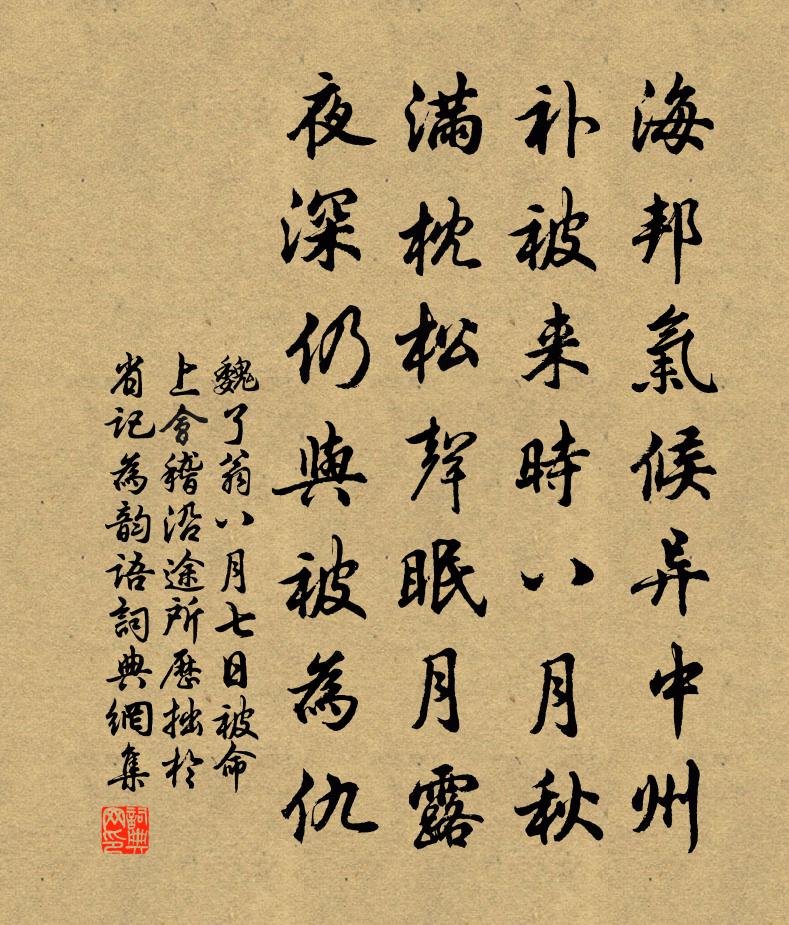 海邦氣候异中州
补被来時八月秋
满枕松聲眠月露
夜深仍與被為仇
魏了翁八月七日被命
上會稽沿途所歷拙於
省记為韵语詞典網集
詞典网印